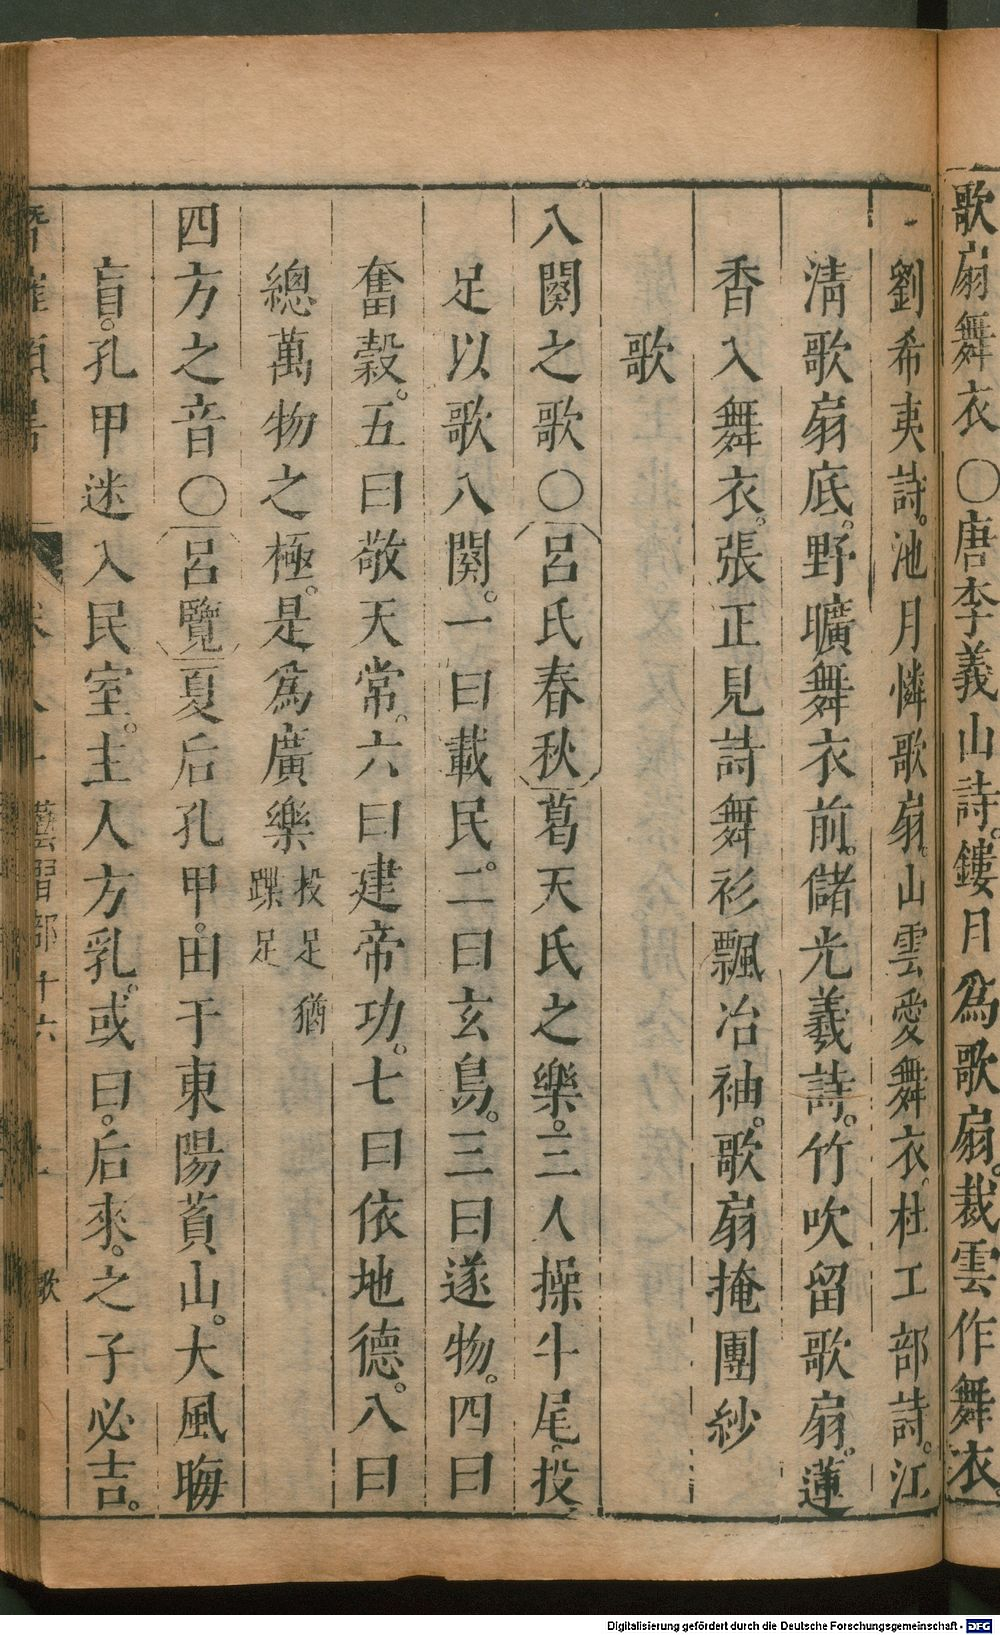 歌扇舞衣○唐李義山詩。鏤月爲歌扇。裁雲作舞衣。
劉希夷詩。池月憐歌扇。山雲愛舞衣。杜工部詩。江
清歌扇底。野曠舞衣前。儲光羲詩。竹吹留歌扇。蓮
香入舞衣。張正見詩舞衫飄冶袖。歌扇掩團紗
歌
八闋之歌○呂氏春秋葛天氏之樂。三人操牛尾。投
足以歌八闋。一曰載民。二曰玄鳥。三曰遂物。四曰
奮穀。五曰敬天常。六曰建帝功。七曰依地德。八曰
總萬物之極。是爲廣樂投足猶蹀足
四方之音○呂覽夏后孔甲。田于東陽萯山。大風晦
盲。孔甲迷入民室。主人方乳。或曰。后來。之子必吉。
藝習部十六 歌
Digitalisierung gefördert durch die Deutsche Forschungsgemeinschaft - DFG